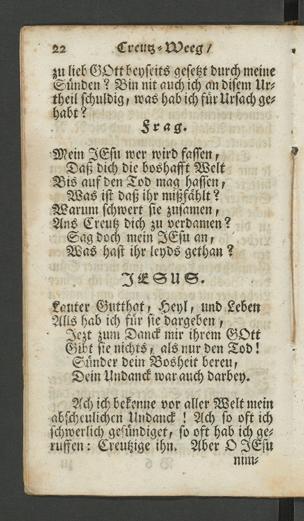 22 Creutz-Weeg/
zu lieb GOtt beyseits gesetzt durch meine
Sünden? Bin nit auch ich an disem Ur-
theil schuldig, was hab ich für Ursach ge-
habt?
Frag.
Mein JEsu wer wird fassen,
Daß dich die boshafft Welt
Bis auf den Tod mag hassen,
Was ist daß ihr mißfählt?
Warum schwert sie zusamen,
Ans Creutz dich zu verdamen?
Sag doch mein JEsu an,
Was hast ihr leyds gethan?
JESUS.
Lauter Gutthat, Heyl, und Leben
Alls hab ich für sie dargeben,
Jezt zum Danck mir ihrem GOtt
Gibt sie nichts, als nur den Tod!
Sünder dein Bosheit bereu,
Dein Undanck war auch darbey.
Ach ich bekenne vor aller Welt mein
abscheulichen Undanck! Ach so oft ich
schwerlich gesündiget, so oft hab ich ge-
ruffen: Creutzige ihn. Aber O JEsu
nim-